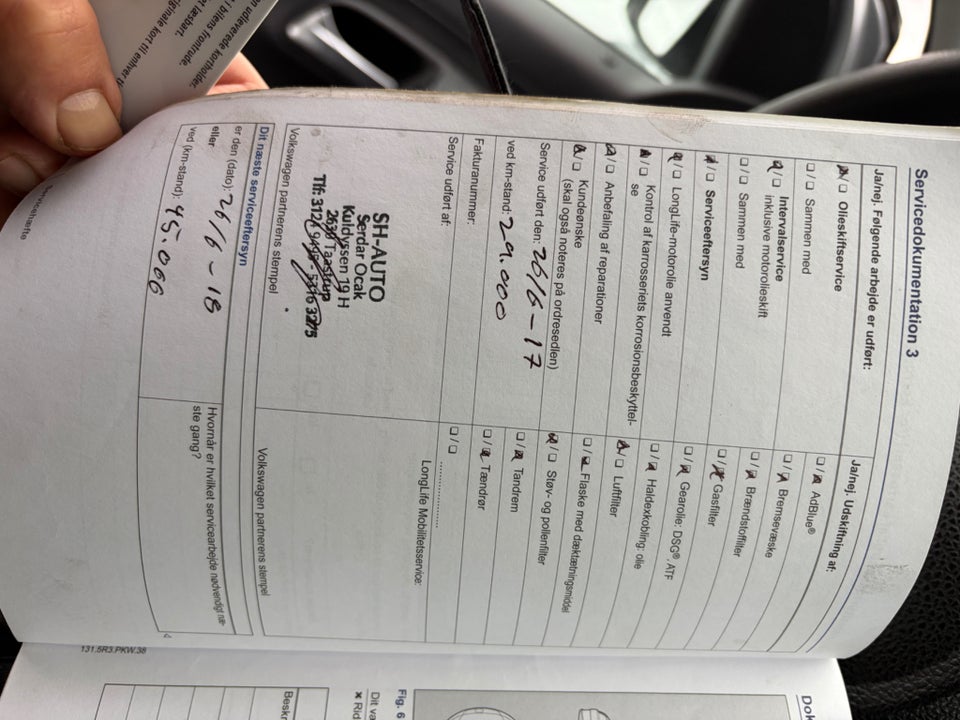 n udleverede kortholder.
i bilens frontrude.
et læsbart.
iginale kort til enhver ti
Servicedokumentation 3
Ja/nej. Følgende arbejde er udført:
☒/☐ Olieskiftservice
☐/☐ Sammen med
☒/☐ Intervalservice
inklusive motorolieskift
☐/☐ Sammen med
☒/☐ Serviceeftersyn
☒/☐ LongLife-motorolie anvendt
☒/☐ Kontrol af karrosseriets korrosionsbeskyttel-
se
☒/☐ Anbefaling af reparationer
☒/☐ Kundeønske
(skal også noteres på ordresedlen)
Service udført den: 26/6-17
ved km-stand: 29.000
Fakturanummer:
Service udført af:
SH-AUTO
Serdar Ocak
Kuldyssen 19 H
2630 Taastrup
Tlf: 312
Volkswagen partnerens stempel
Ja/nej. Udskiftning af:
☐/☒ AdBlue®
☐/☒ Bremsevæske
☐/☒ Brændstoffilter
☐/☒ Gasfilter
☐/☒ Gearolie: DSG® ATF
☐/☒ Haldexkobling: olie
☒/☐ Luftfilter
☐/☒ Flaske med dæktætningsmiddel
☒/☐ Støv- og pollenfilter
☐/☒ Tandrem
☐/☒ Tændrør
☐/☐ ....................
LongLife Mobilitetsservice:
Volkswagen partnerens stempel
Dit næste serviceeftersyn
er den (dato): 26/6-18
eller
ved (km-stand): 45.000
Hvornår er hvilket servicearbejde nødvendigt næ-
ste gang?
Servicehæfte
131.5R3.PKW.38
Dok
Fig. 6
Dit va
✖ Rid
Beskr